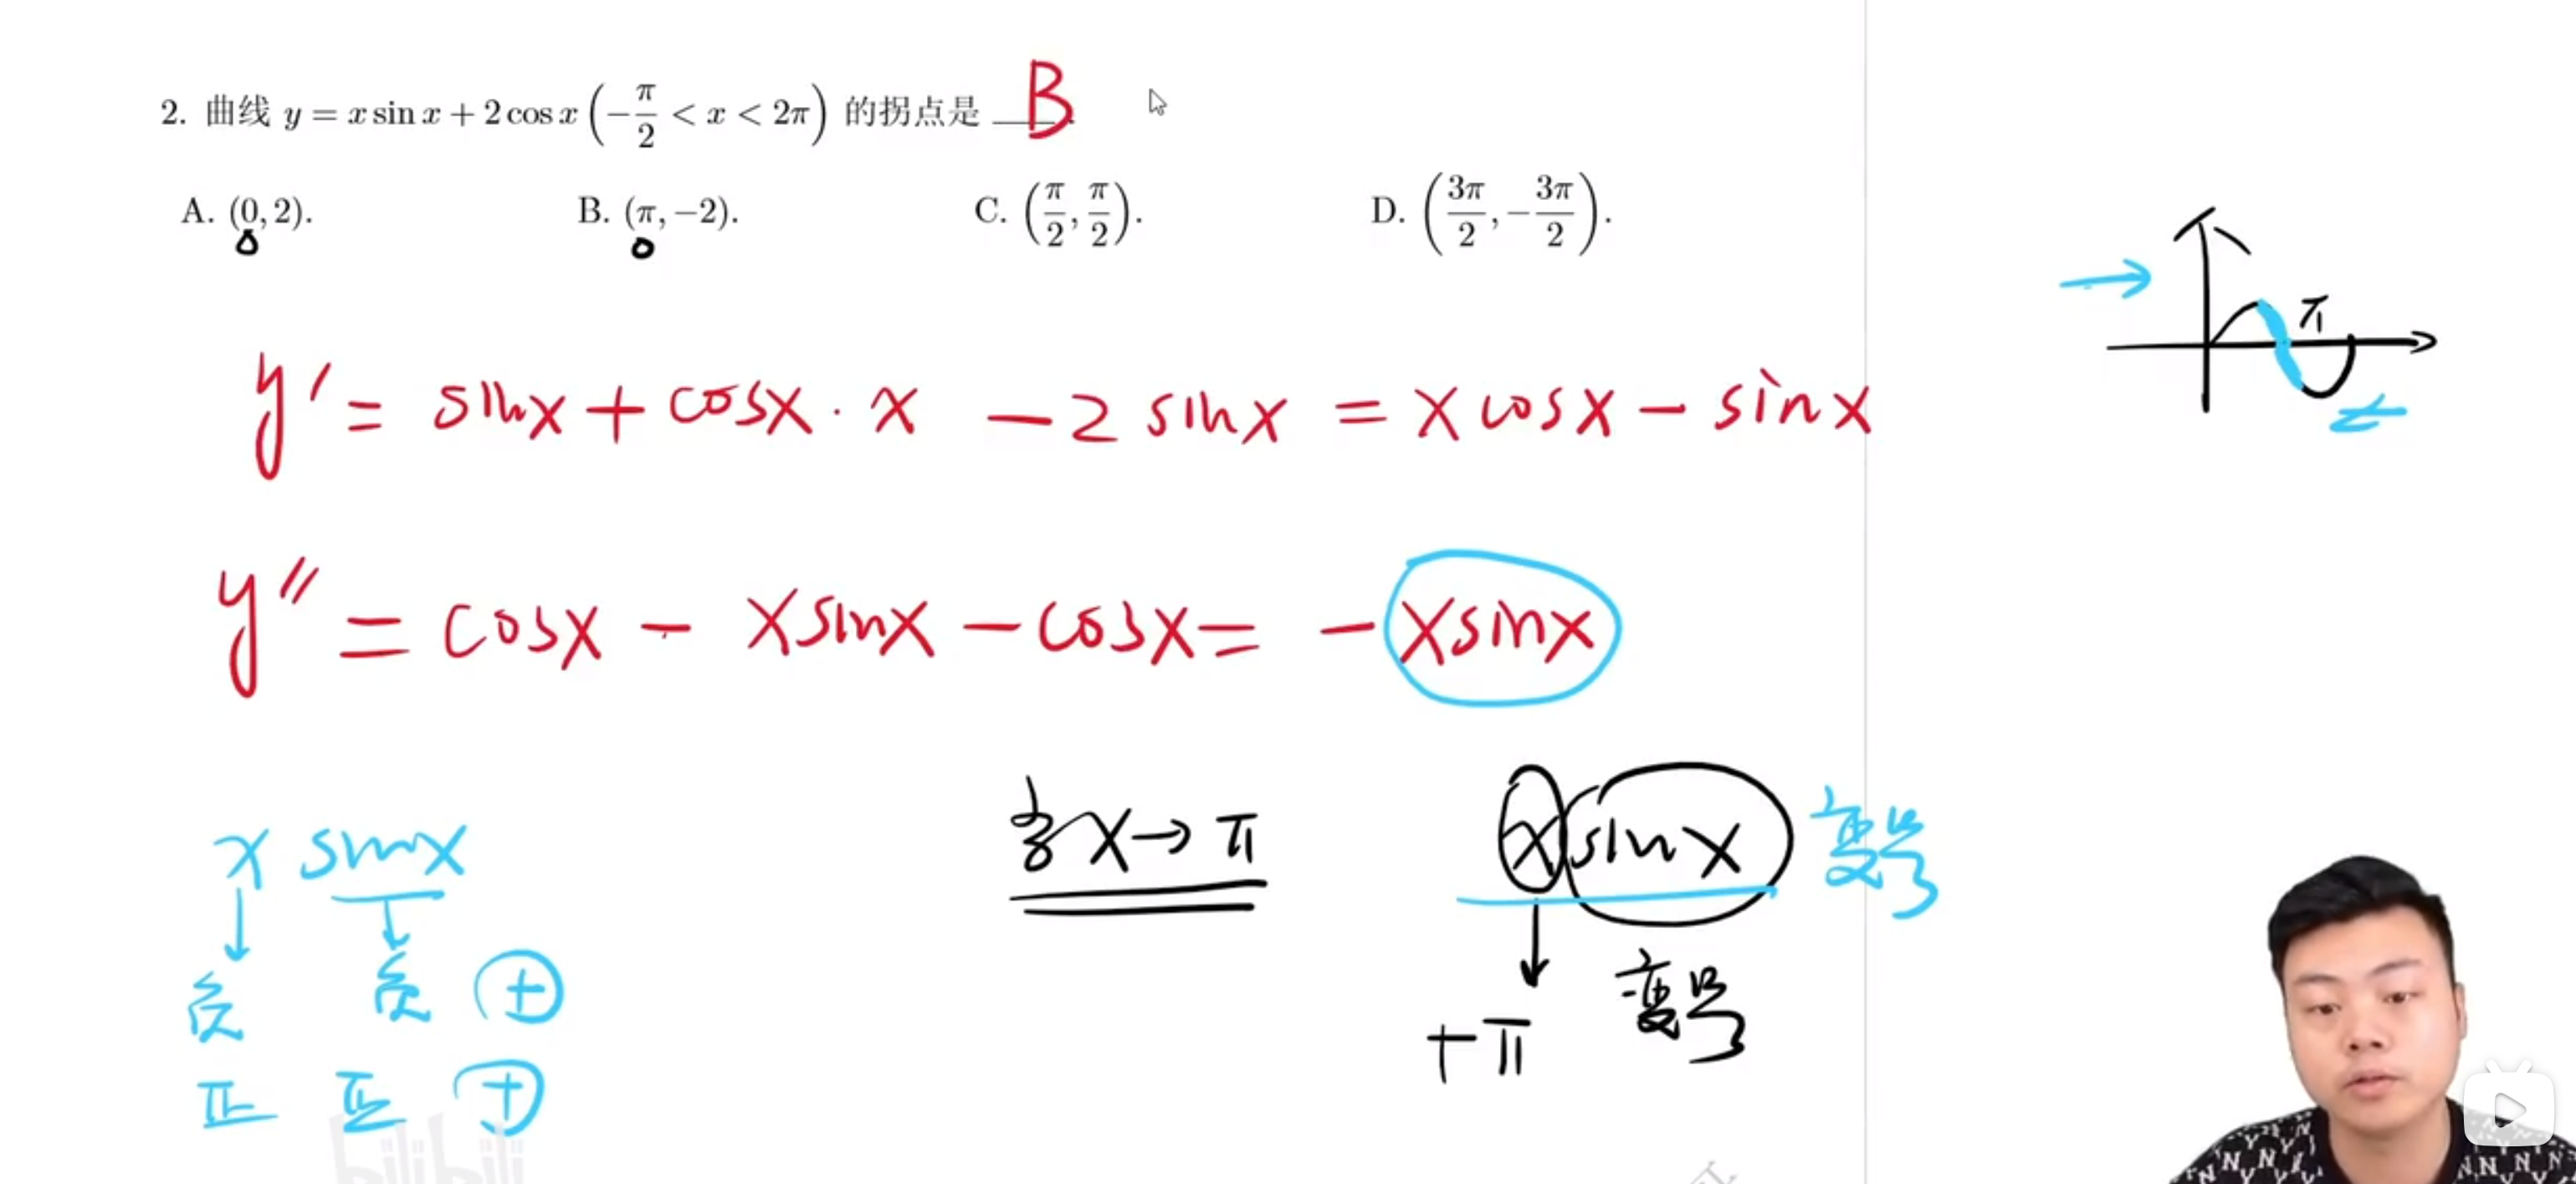 2. 曲线 y = x sin x + 2 cos x (−π/2 < x < 2π) 的拐点是 B.
A. (0, 2). B. (π, −2). C. (π/2, π/2). D. (3π/2, −3π/2).
π
y′ = sinx + cosx · x − 2 sinx = x cosx − sinx
y″ = cosx − xsinx − cosx = − xsinx
x sinx
当 x → π
x sinx 变号
负 负 +
+π 变号
正 正 +
bilibili